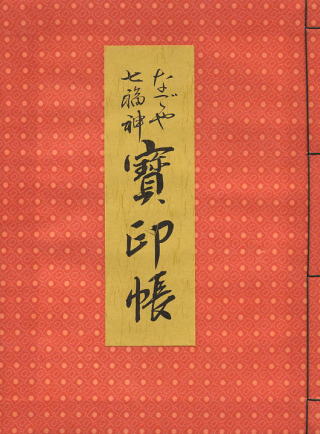 なごや
七福神
寶印帳